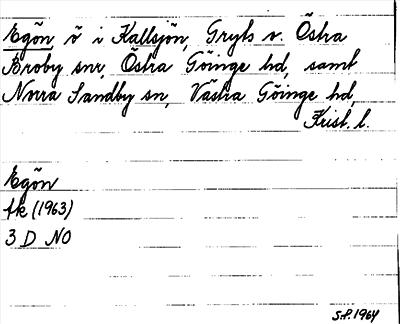 Egön ö i Kallsjön, Gryts o. Östra
Broby snr, Östra Göinge hd, samt
Norra Sandby sn, Västra Göinge hd,
Krist. l.
Egön
fk (1963)
3 D NO
S.F. 1964